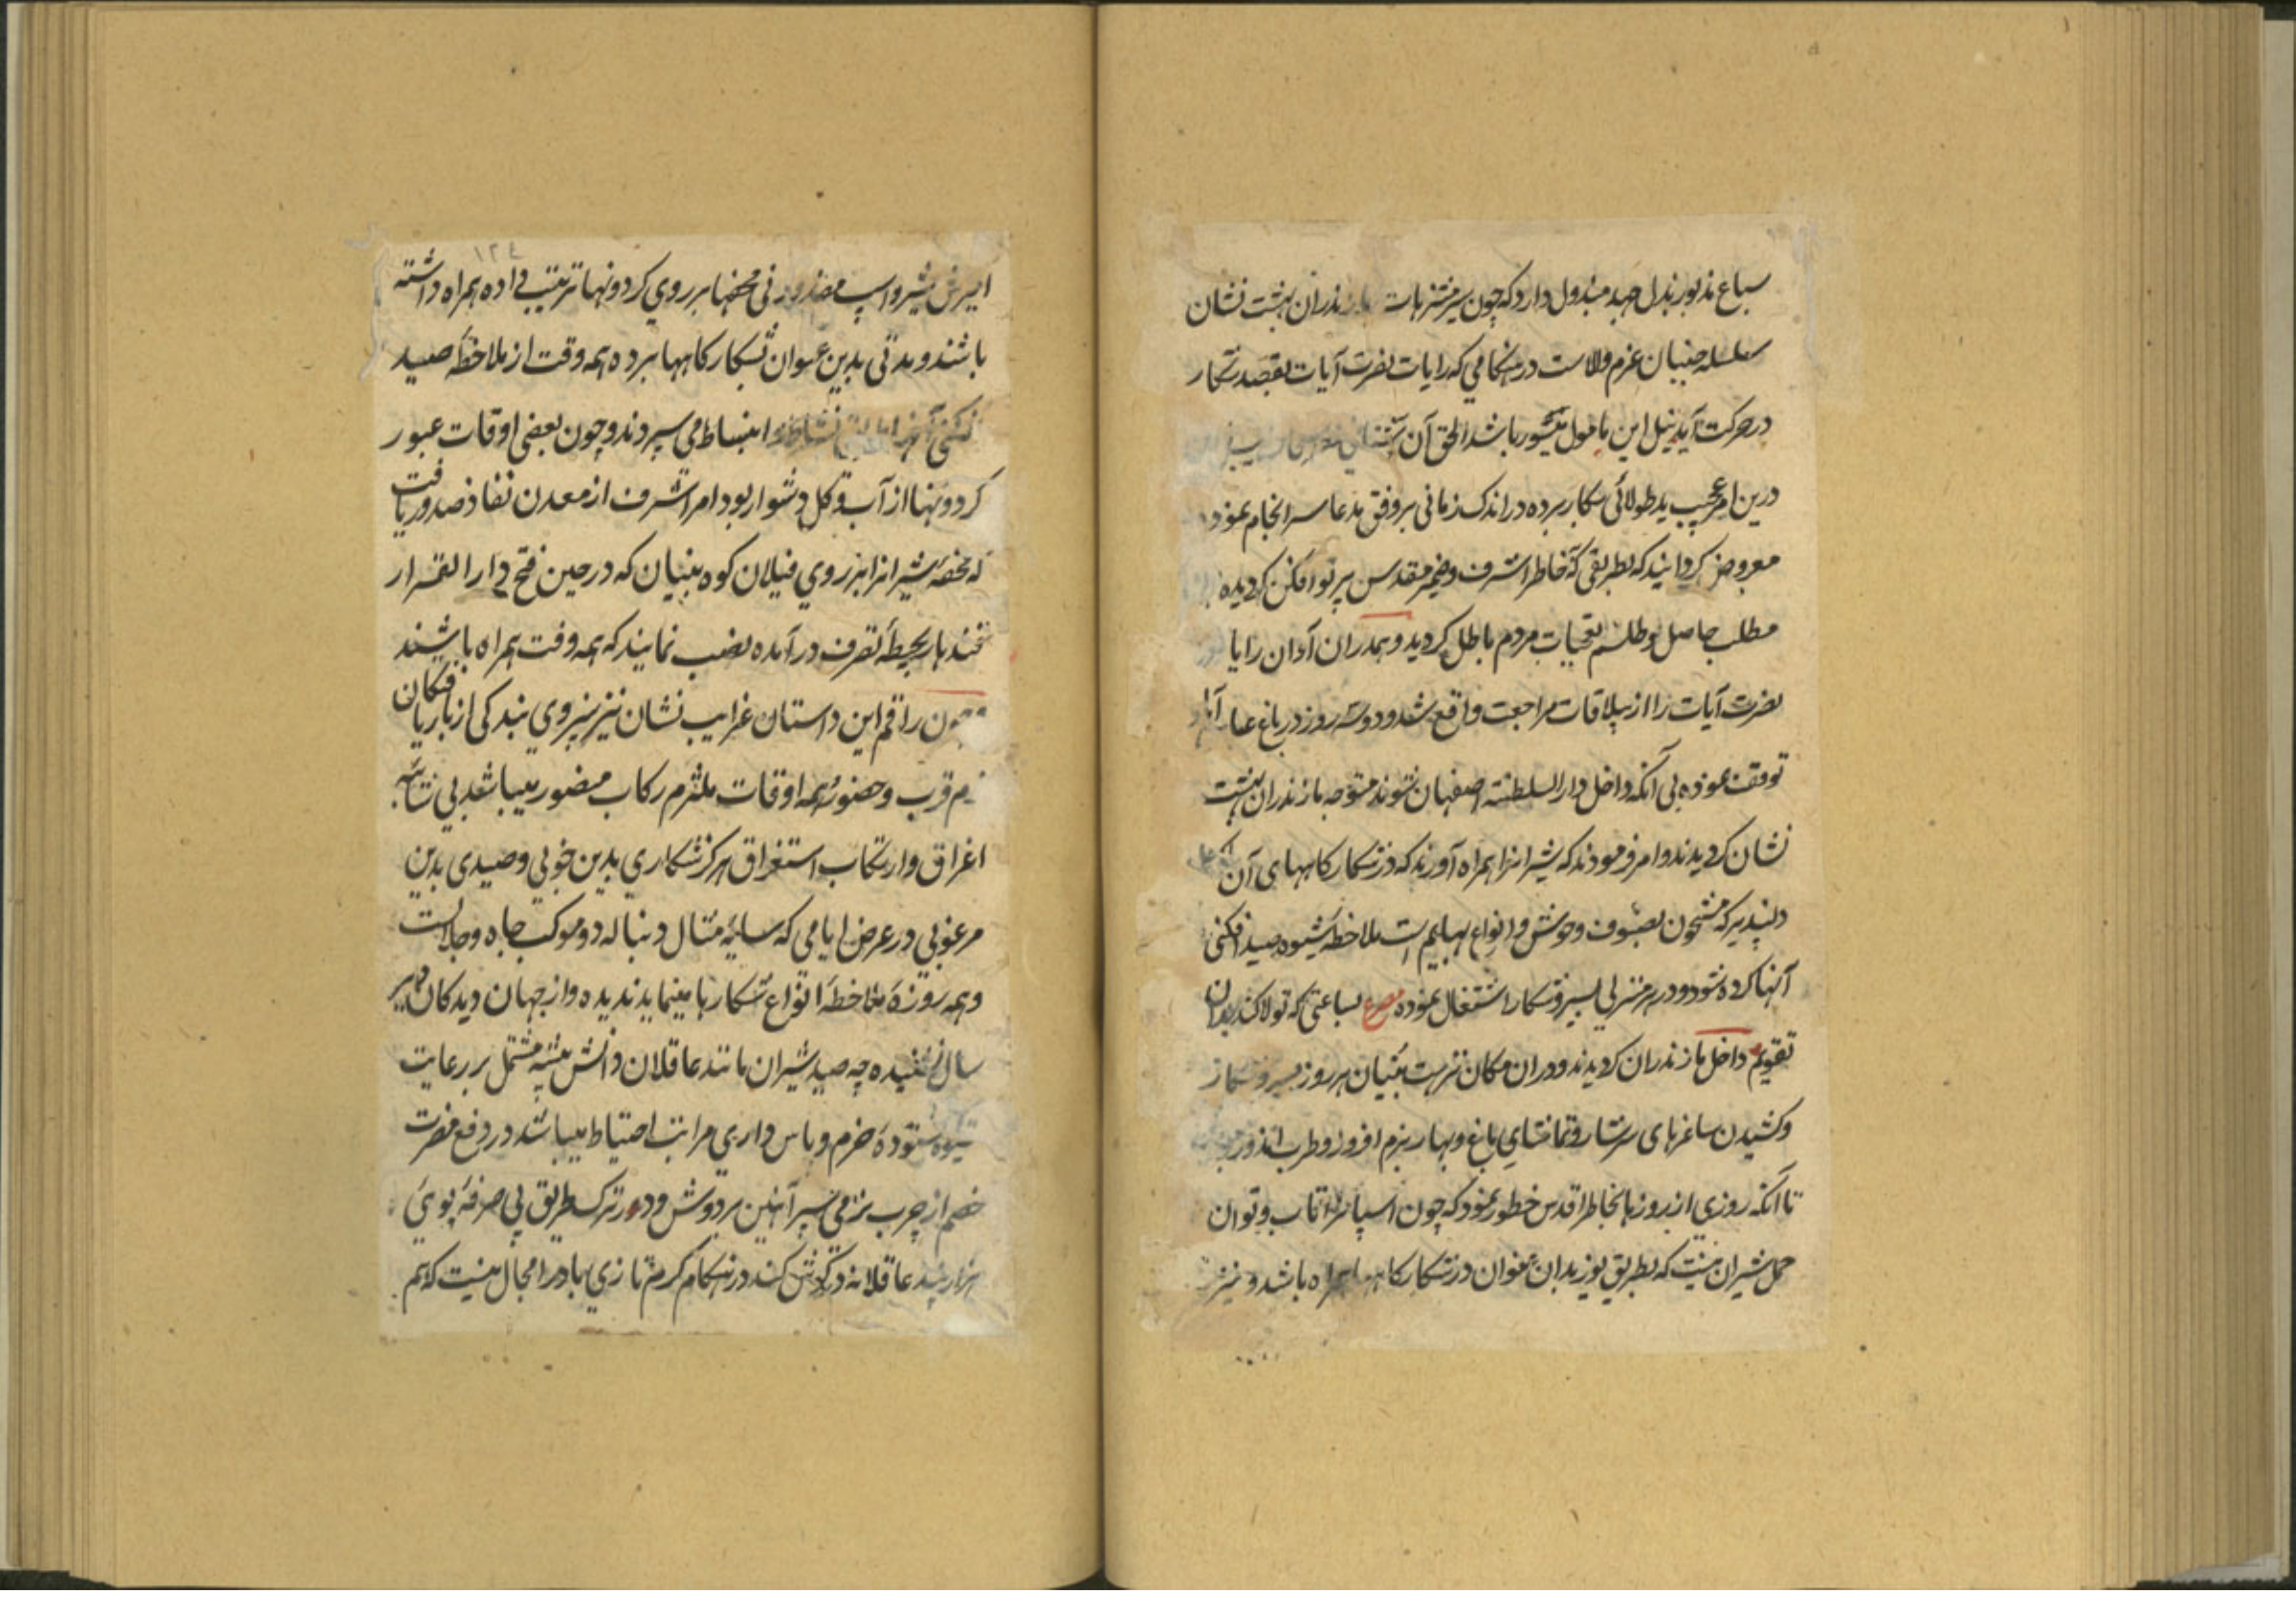 سباع مذبور بذل جهد مبذول دارد که چون سیر متنزهات مازندران بهشت نشان
سلسله جنبان عزم والاست در هنکامی که رایات نصرت آیات بقصد شکار
در حرکت آید نیل این مامول میسور باشد الحق آن
درین امر عجیب ید طولائی بکار برده در اندک زمانی بر وفق مدعا سرانجام نموده
معروض کردانید که بطریقی که خاطر اشرف و ضمیر مقدس پرتو افکن کردیده
مطلب حاصل و طلسم تعجبات مردم باطل کردید و همدران آوان رایات
نصرت آیات را از ییلاقات مراجعت واقع شد و دو سه روز در باغ
توقف نموده بی آنکه داخل دار السلطنه اصفهان شوند متوجه مازندران بهشت
نشان کردیدند و امر فرمودند که شیرانرا همراه آورند که در شکار کاههای آن
دلپذیر که مشحون بصنوف وحوش و انواع بهایم است ملاحظه شیوه صید افکنی
آنها کرده شود و در هر منزلی بسیر و شکار اشتغال نموده مصرع بساعتی که تولا کند بدان
تقویم داخل مازندران کردیدند و در ان مکان نزهت بنیان هر روز بسیر و شکار
و کشیدن ساغرهای سرشار و تماشای باغ و بهار بزم افروز و طرب اندوز
تا آنکه روزی از روزها بخاطر اقدس خطور نمود که چون اسپانرا تاب و توان
حمل شیران نیست که بطریق یوز بدان عنوان در شکار کاهها همراه باشد و نیز
۱۲٤
امیزش شیر و اسپ مقدور نی محفها بر روی کردونها ترتیب داده همراه داشته
باشند و مدتی بدین عنوان بشکار کاهها برده همه وقت از ملاحظه صید
انبساط می سپردند و چون بعضی اوقات عبور
کردونها از آب و کل دشوار بود امر اشرف از معدن نفاذ صدور یافت
که محفه شیرانرا بر روی فیلان کوه بنیان که در حین فتح دار القرار
قندهار بحیطه تصرف در آمده نصب نمایند که همه وقت همراه باشند
چون راقم این داستان غرایب نشان نیز نیروی بندکی از باریافتکان
بزم قرب و حضور همه اوقات ملتزم رکاب منصور میباشد بی شائبه
اغراق و ارتکاب استغراق هرکز شکاری بدین خوبی و صیدی بدین
مرغوبی در عرض ایامی که سایه مثال دنباله دو موکب جاه و جلالست
و همه روزه ملاحظه انواع شکارها مینماید ندیده و از جهان دیدکان پیر
سال نشنیده چه صید شیران مانند عاقلان دانش پیشه مشتمل بر رعایت
شیوه ستوده حزم و پاس داری مراتب احتیاط میباشد در دفع مضرت
خصم از چرب نرمی سپر آهنین بر دوش و در ترک طریق بی صرفه پویی
هزار پند عاقلانه در کوش کند در هنکام کرم تازی باد را مجال نیست که هم